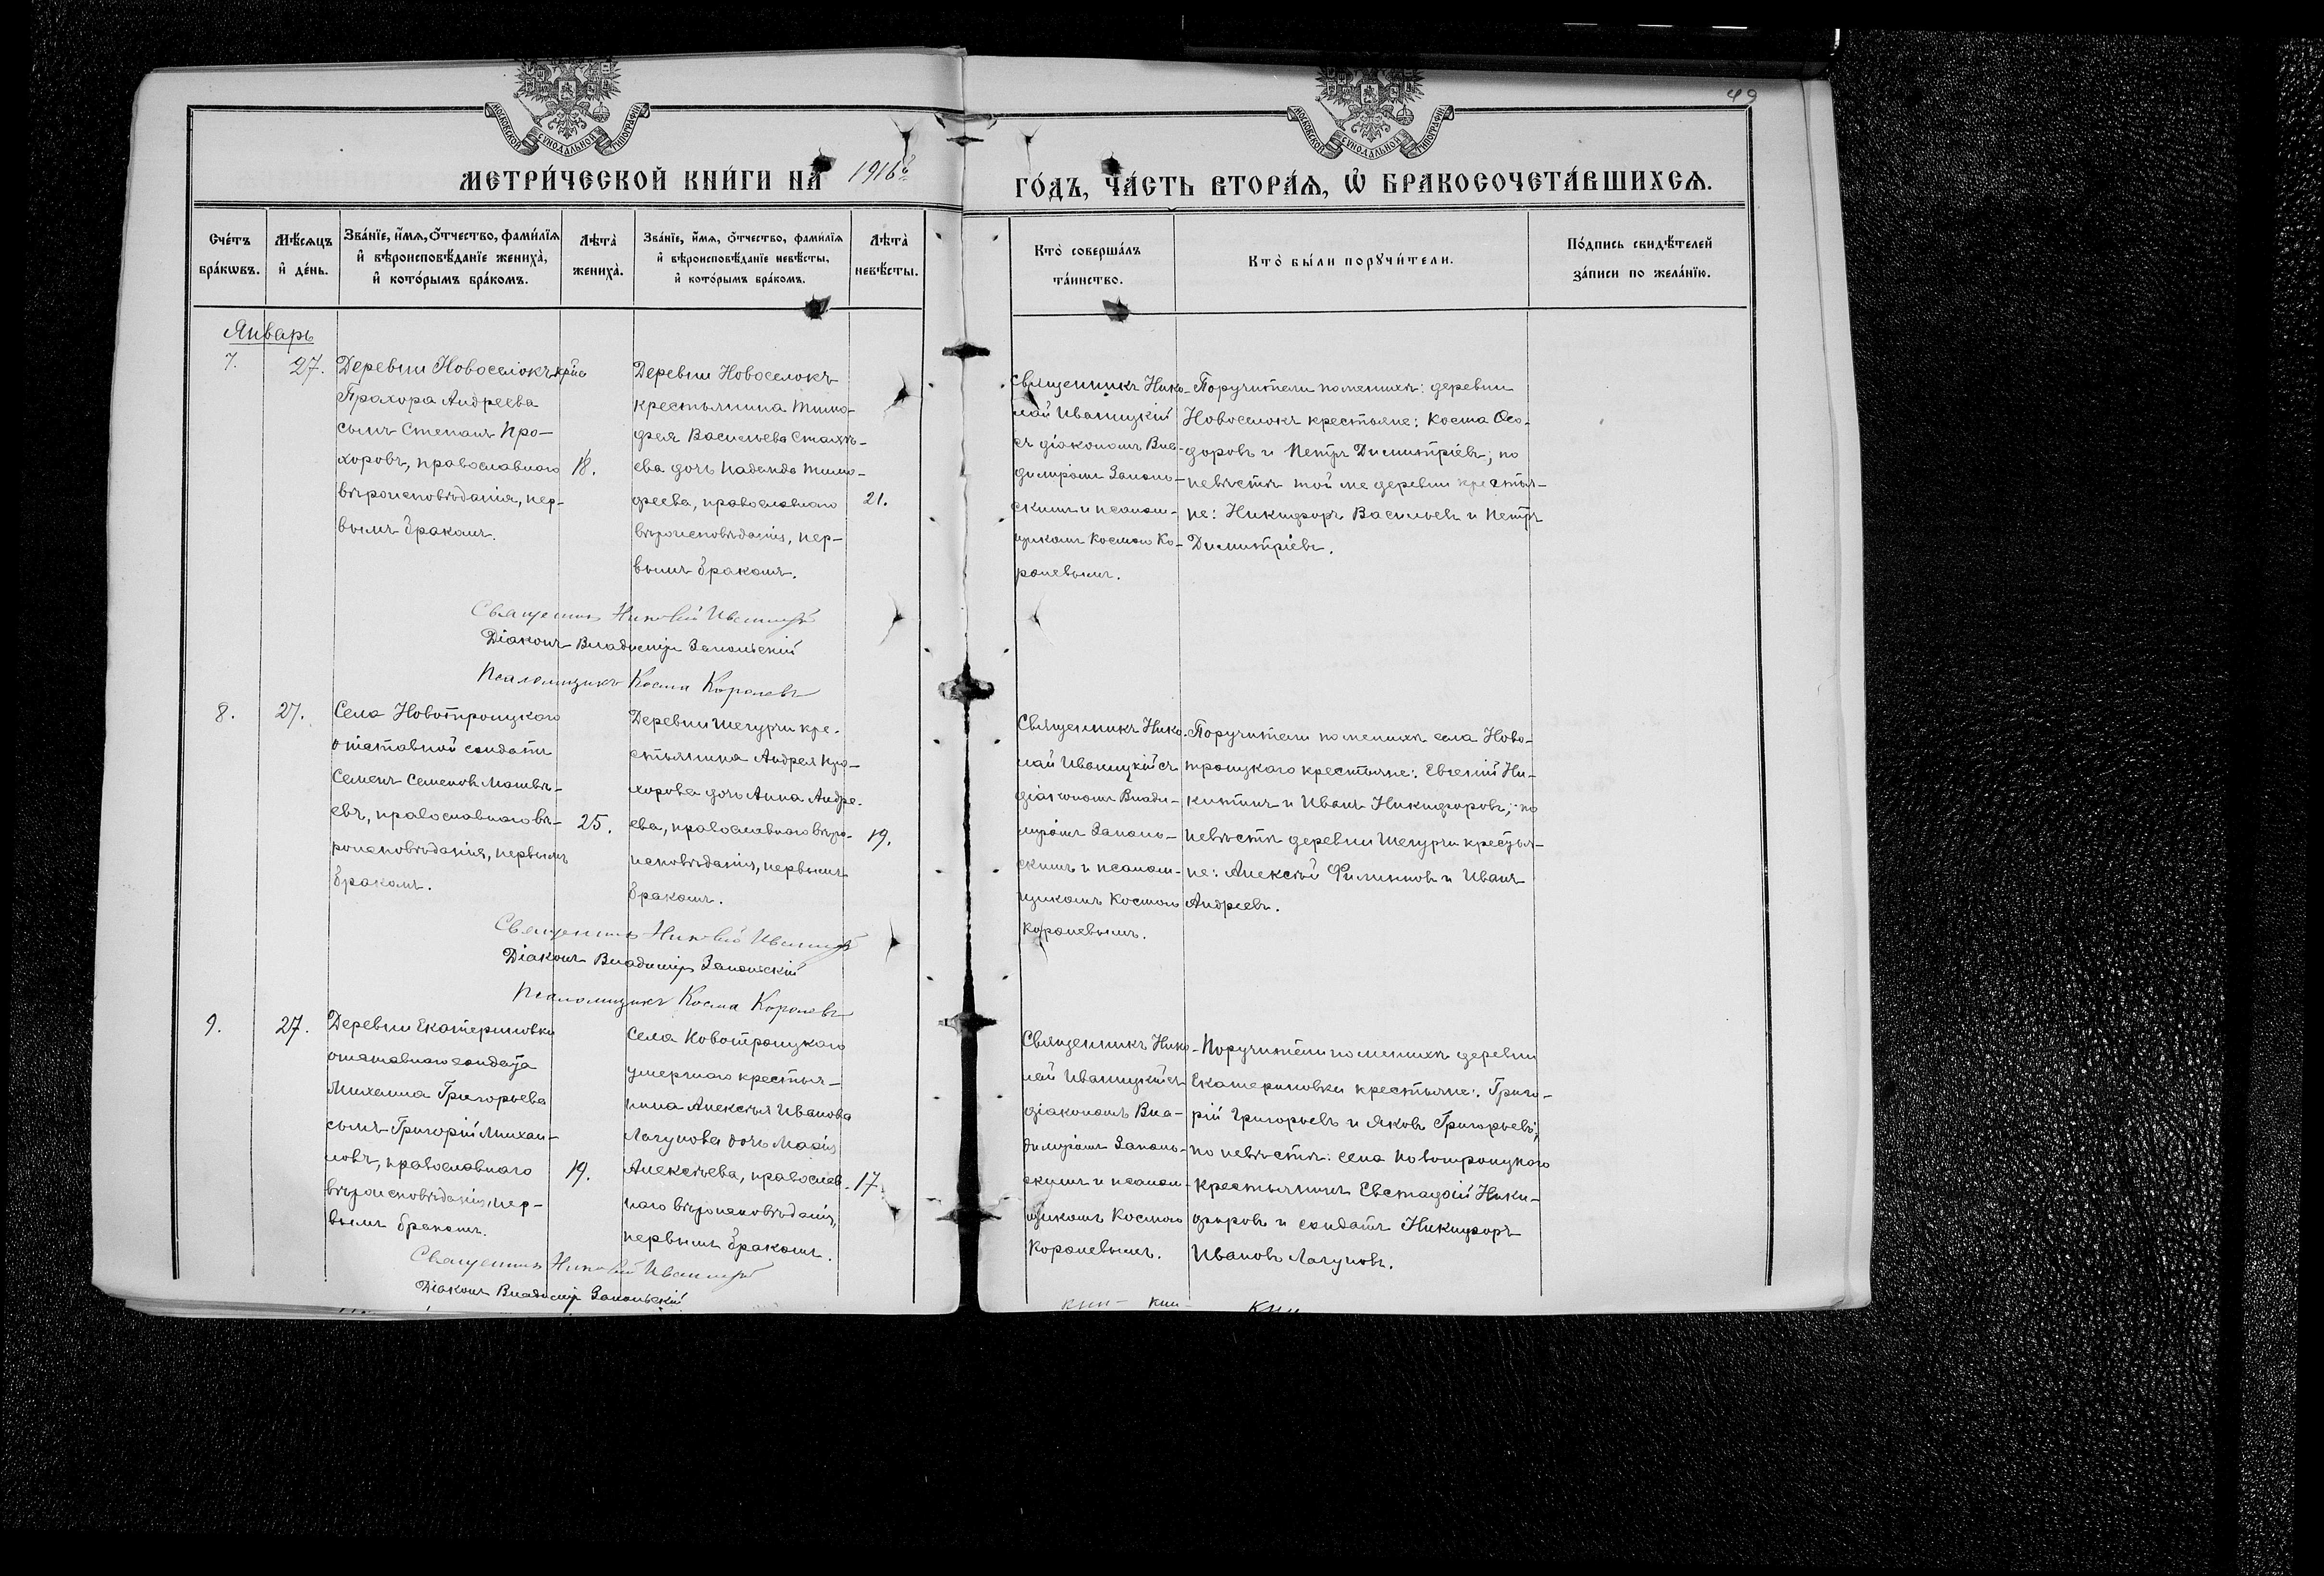 49
МОСКОВСКОЙ СУНОДАЛЬНОЙ ТИПОГРАФІИ
МОСКОВСКОЙ СУНОДАЛЬНОЙ ТИПОГРАФІИ
МЕТРИ́ЧЕСКОЙ КНИ́ГИ НА 1916й
ГО́ДЪ, ЧА́СТЬ ВТОРА́Я, Ѡ҆ БРАКОСОЧЕТА́ВШИХСѦ.
Сче́тъ бра́кѡвъ.
Мѣ́сяцъ и҆ де́нь.
Зва́нїе, и҆́мѧ, ѻ҆́тчество, фамилїѧ и҆ вѣроисповѣ́данїе жениха̀, и҆ кото́рымъ бра́комъ.
Лѣта̀ жениха̀.
Зва́нїе, и҆́мѧ, ѻ҆́тчество, фамилїѧ и҆ вѣроисповѣ́данїе невѣ́сты, и҆ кото́рымъ бра́комъ.
Лѣта̀ невѣ́сты.
Кто̀ соверша́лъ та́инство.
Кто̀ бы́ли порꙋчи́тели.
По́дпись свидѣ́телей за́писи по жела́нїю.
Январь
7.
27.
Деревни Новоселокъ кр-на
Прохора Андреева
сынъ Степанъ Про-
хоровъ, православнаго
вѣроисповѣданія, пер-
вымъ бракомъ.
18.
Деревни Новоселокъ
крестьянина Тимо-
фея Васильева
ева дочь Надежда Тимо-
феева, православнаго
вѣроисповѣданія, пер-
вымъ бракомъ.
21.
Священникъ Нико-
лай Иваницкій
съ діакономъ Вла-
диміромъ Заполь-
скимъ и псалом-
щикомъ Космою Ко-
ролевымъ.
Поручители по женихѣ: деревни
Новоселокъ крестьяне: Косма Ѳео-
доровъ и Петръ Димитріевъ; по
невѣстѣ той же деревни крестья-
не: Никифоръ Васильевъ и Петръ
Димитріевъ.
Священникъ Николай Иваницкій
Діаконъ Владиміръ Запольскій
Псаломщикъ Косма Королевъ
8.
27.
Села Новотроицкаго
отставной солдатъ
Семенъ Семеновъ Матвѣ-
евъ, православнаго вѣ-
роисповѣданія, первымъ
бракомъ.
25.
Деревни Шегурчи кре-
стьянина Андрея Про-
хорова дочь Анна Андре-
ева, православнаго вѣро-
исповѣданія, первымъ
бракомъ.
19.
Священникъ Нико-
лай Иваницкій съ
діакономъ Влади-
міромъ Заполь-
скимъ и псалом-
щикомъ Космою
Королевымъ.
Поручители по женихѣ села Ново-
троицкаго крестьяне: Евгеній Ни-
китинъ и Иванъ Никифоровъ; по
невѣстѣ деревни Шегурчи крестья-
не: Алексѣй Филипповъ и Иванъ
Андреевъ.
Священникъ Николай Иваницкій
Діаконъ Владиміръ Запольскій
Псаломщикъ Косма Королевъ
9.
27.
Деревни Екатериновки
отставнаго солдата
Михаила Григорьева
сынъ Григорій Михаи-
ловъ, православнаго
вѣроисповѣданія, пер-
вымъ бракомъ.
19.
Села Новотроицкаго
умершаго крестья-
нина Алексѣя Иванова
Лагунова дочь Марія
Алексѣева, православ-
наго вѣроисповѣданія,
первымъ бракомъ.
17
Священникъ Нико-
лай Иваницкій съ
діакономъ Вла-
диміромъ Заполь-
скимъ и псалом-
щикомъ Космою
Королевымъ.
Поручители по женихѣ деревни
Екатериновки крестьяне: Григо-
рій Григорьевъ и Яковъ Григорьевъ;
по невѣстѣ: села Новотроицкаго
крестьянинъ Евстафій Ники-
форовъ и солдатъ Никифоръ
Ивановъ Лагуновъ.
Священникъ Николай Иваницкій
Діаконъ Владиміръ Запольскій